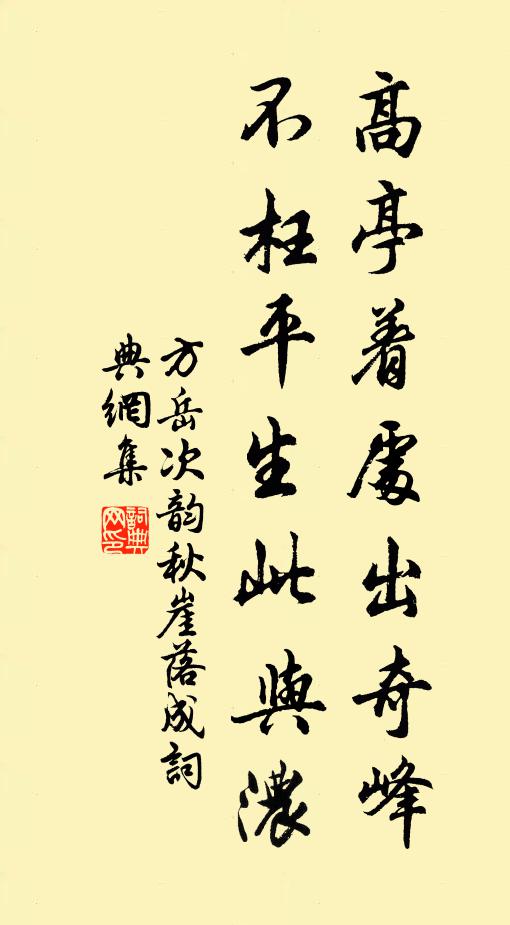 高亭着處出奇峰
不枉平生此興濃
方岳次韵秋崖落成詞
典網集
詞典網印